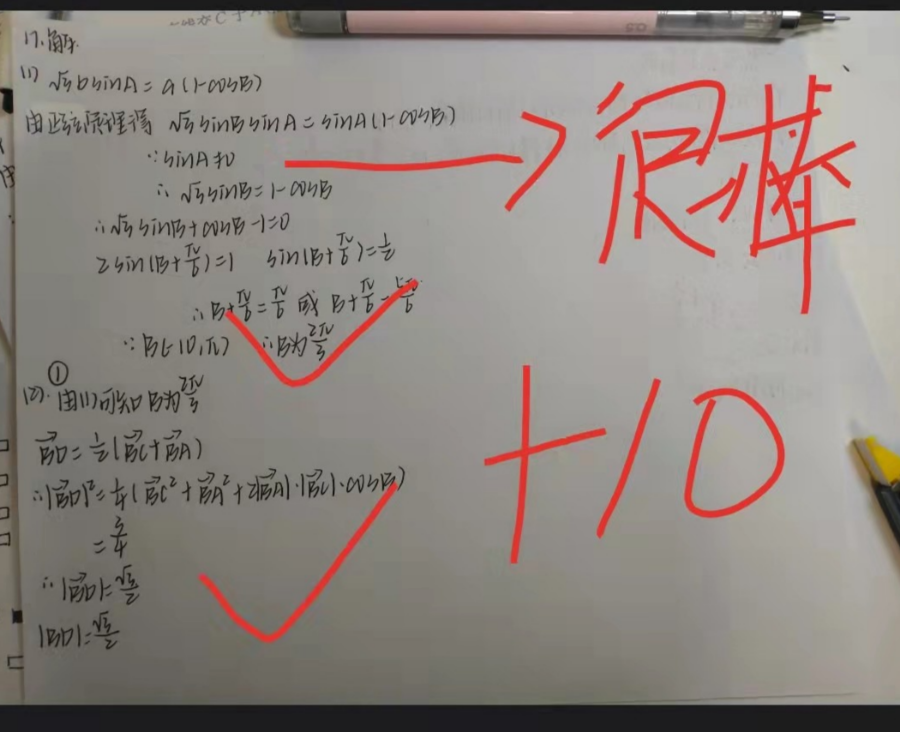 17.解:
(1) √3bsinA=a(1-cosB)
由正弦定理得 √3sinBsinA=sinA(1-cosB)
∵sinA≠0
∴√3sinB=1-cosB
∴√3sinB+cosB-1=0
2sin(B+π/6)=1 sin(B+π/6)=1/2
∴B+π/6=π/6 或 B+π/6=5π/6
∵B∈(0,π) ∴B为2π/3
(2).① 由(1)可知B为2π/3
BD=1/2(BC+BA)
∴|BD|²=1/4(BC²+BA²+2|BA|·|BC|·cosB)
=3/4
∴|BD|=√3/2
|BD|=√3/2
很棒
+10
0.5